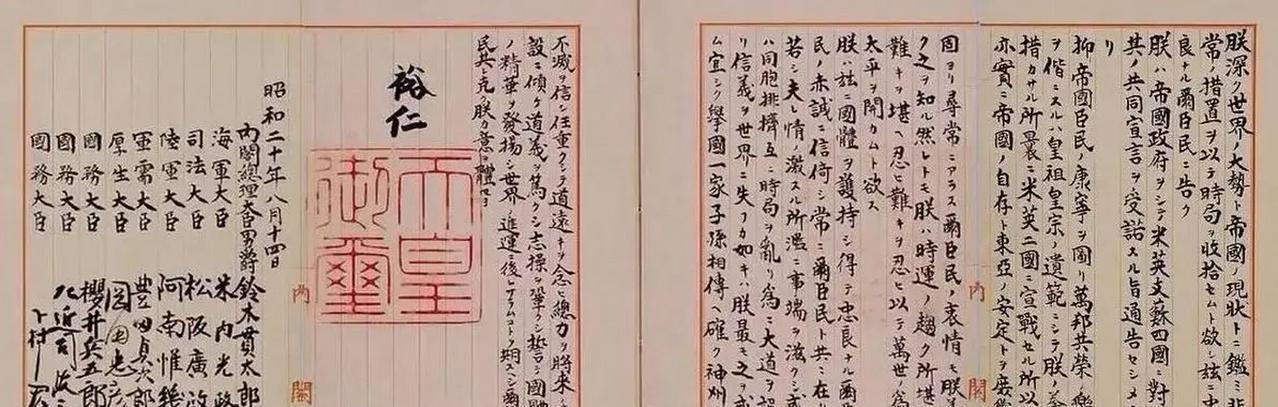 朕深ク世界ノ大勢ト帝國ノ現狀トニ鑑ミ非
常ノ措置ヲ以テ時局ヲ收拾セムト欲シ茲ニ忠
良ナル爾臣民ニ告ク
朕ハ帝國政府ヲシテ米英支蘇四國ニ對
其ノ共同宣言ヲ受諾スル旨通告セシメ
リ
抑〻帝國臣民ノ康寧ヲ圖リ萬邦共榮ノ樂
ヲ偕ニスルハ皇祖皇宗ノ遺範ニシテ朕ノ拳
措カサル所曩ニ米英二國ニ宣戰セル所以
亦實ニ帝國ノ自存ト東亞ノ安定トヲ庶幾
内閣
固ヨリ尋常ニアラス爾臣民ノ衷情モ朕
ク之ヲ知ル然レトモ朕ハ時運ノ趨ク所堪
難キヲ堪ヘ忍ヒ難キヲ忍ヒ以テ萬世ノ爲
太平ヲ開カムト欲ス
朕ハ茲ニ國體ヲ護持シ得テ忠良ナル爾
民ノ赤誠ニ信倚シ常ニ爾臣民ト共ニ在リ
若シ夫レ情ノ激スル所濫ニ事端ヲ滋クシ或
ハ同胞排擠互ニ時局ヲ亂リ爲ニ大道ヲ誤
リ信義ヲ世界ニ失フカ如キハ朕最モ之ヲ戒
ム宜シク擧國一家子孫相傳ヘ確ク神州
不滅ヲ信シ任重クシテ道遠キヲ念ヒ總力ヲ將來ノ
設ニ傾ケ道義ヲ篤クシ志操ヲ鞏クシ誓テ國體
ノ精華ヲ發揚シ世界ノ進運ニ後レサラムコトヲ期スヘシ爾
民其レ克ク朕カ意ヲ體セヨ
裕仁
天皇御璽
内閣
昭和二十年八月十四日
内閣總理大臣男爵鈴木貫太郎
海軍大臣 米内光政
司法大臣 松阪廣政
陸軍大臣 阿南惟幾
軍需大臣 豊田貞次郎
厚生大臣 岡田忠彦
國務大臣 櫻井兵五郎
國務大臣 左近司政三
國務大臣 下村宏